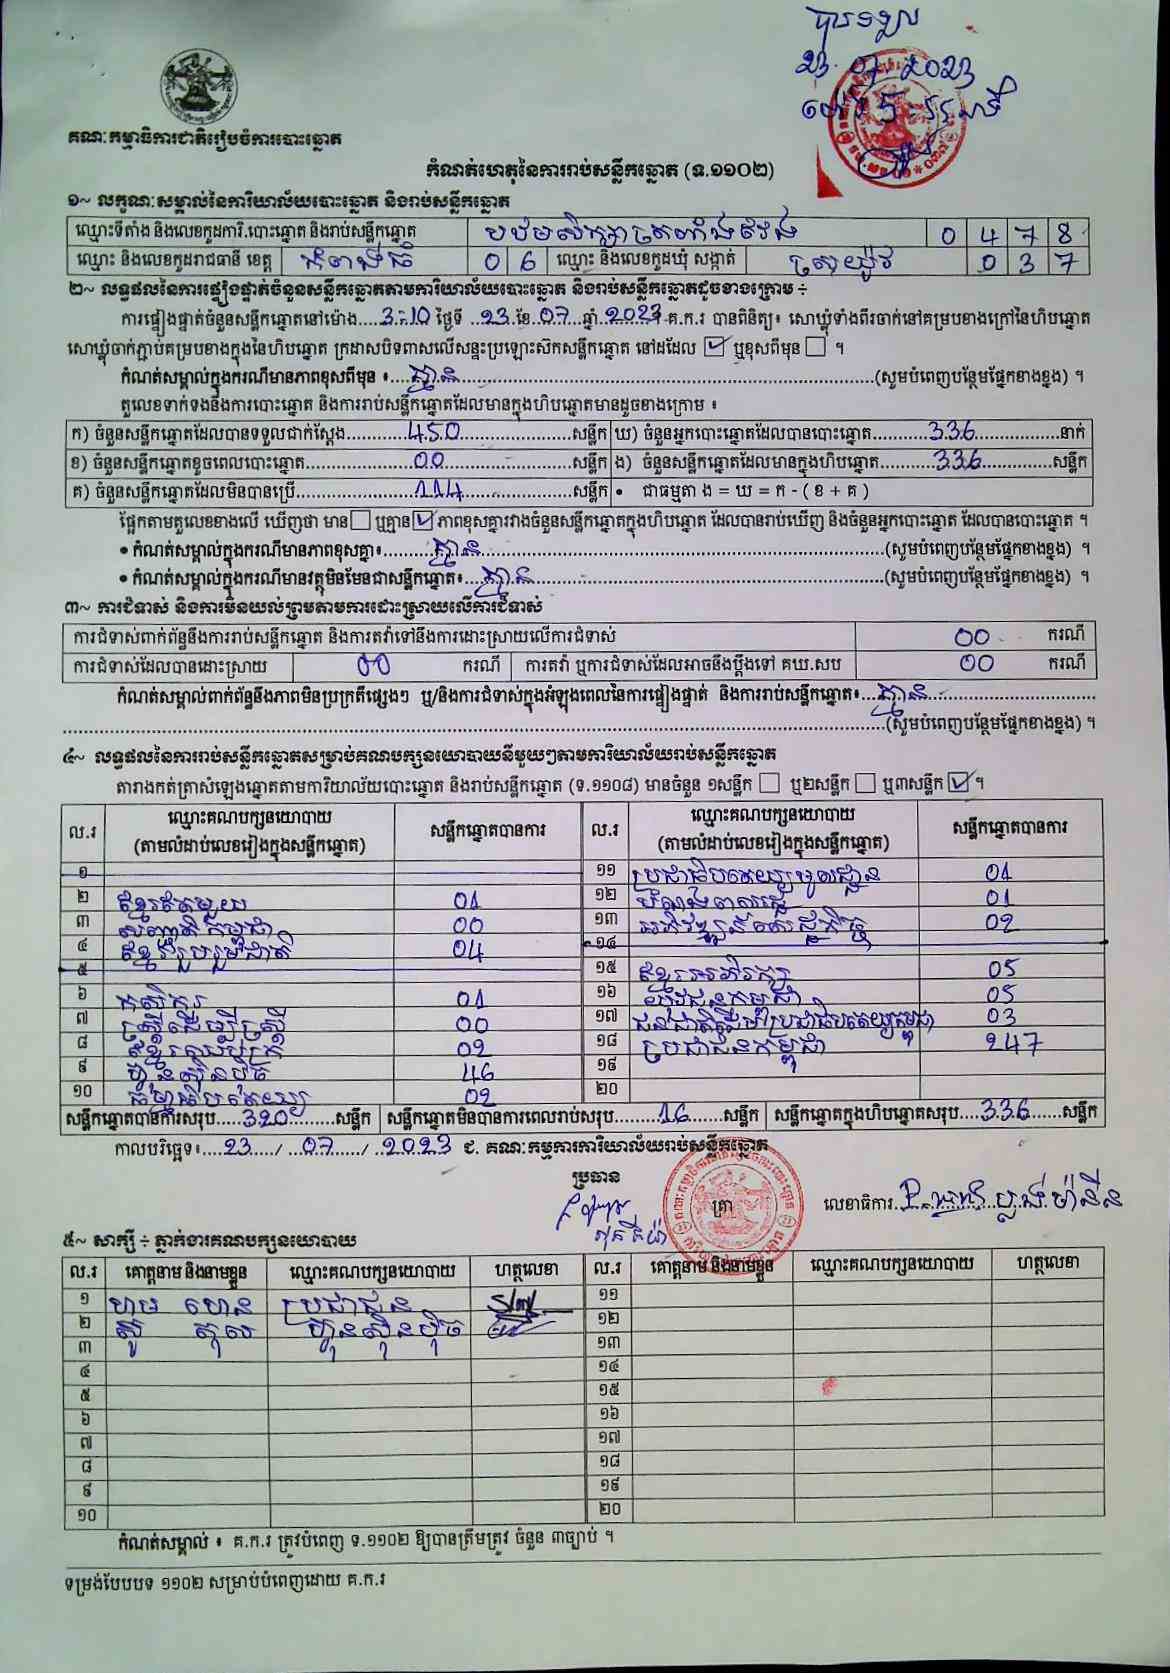 បានទទួល
23.07.2023
ម៉ោង 5
គណៈកម្មាធិការជាតិរៀបចំការបោះឆ្នោត
កំណត់ហេតុនៃការរាប់សន្លឹកឆ្នោត (ទ.១១០២)
១~ លក្ខណៈសម្គាល់នៃការិយាល័យបោះឆ្នោត និងរាប់សន្លឹកឆ្នោត
ឈ្មោះទីតាំង និងលេខកូដការិ.បោះឆ្នោត និងរាប់សន្លឹកឆ្នោត បឋមសិក្សាត្រពាំងវែង 0 4 7 8
ឈ្មោះ និងលេខកូដរាជធានី ខេត្ត កំពង់ធំ 0 6 ឈ្មោះ និងលេខកូដឃុំ សង្កាត់ ស្រយ៉ូវ 0 3 7
២~ លទ្ធផលនៃការផ្ទៀងផ្ទាត់ចំនួនសន្លឹកឆ្នោតតាមការិយាល័យបោះឆ្នោត និងរាប់សន្លឹកឆ្នោតដូចខាងក្រោម ÷
ការផ្ទៀងផ្ទាត់ចំនួនសន្លឹកឆ្នោតនៅម៉ោង....3:10 ថ្ងៃទី ..23.ខែ.07...ឆ្នាំ..2023 គ.ក.រ បានពិនិត្យ៖ សោឃ្លុំទាំងពីរចាក់នៅគម្របខាងក្រៅនៃហិបឆ្នោត
សោឃ្លុំចាក់ភ្ជាប់គម្របខាងក្នុងនៃហិបឆ្នោត ក្រដាសបិទពាសលើសន្ទះប្រឡោះស៊កសន្លឹកឆ្នោត នៅដដែល ☑ ឬខុសពីមុន ☐ ។
កំណត់សម្គាល់ក្នុងករណីមានភាពខុសពីមុន ៖....គ្មាន....(សូមបំពេញបន្ថែមផ្នែកខាងខ្នង) ។
តួលេខទាក់ទងនឹងការបោះឆ្នោត និងការរាប់សន្លឹកឆ្នោតដែលមានក្នុងហិបឆ្នោតមានដូចខាងក្រោម ៖
ក) ចំនួនសន្លឹកឆ្នោតដែលបានទទួលជាក់ស្តែង............450............សន្លឹក ឃ) ចំនួនអ្នកបោះឆ្នោតដែលបានបោះឆ្នោត..........336..........នាក់
ខ) ចំនួនសន្លឹកឆ្នោតខូចពេលបោះឆ្នោត............00............សន្លឹក ង) ចំនួនសន្លឹកឆ្នោតដែលមានក្នុងហិបឆ្នោត..........336..........សន្លឹក
គ) ចំនួនសន្លឹកឆ្នោតដែលមិនបានប្រើ............114............សន្លឹក • ជាធម្មតា ង = ឃ = ក - ( ខ + គ )
ផ្អែកតាមតួលេខខាងលើ ឃើញថា មាន ☐ ឬគ្មាន ☑ ភាពខុសគ្នារវាងចំនួនសន្លឹកឆ្នោតក្នុងហិបឆ្នោត ដែលបានរាប់ឃើញ និងចំនួនអ្នកបោះឆ្នោត ដែលបានបោះឆ្នោត ។
• កំណត់សម្គាល់ក្នុងករណីមានភាពខុសគ្នា៖........គ្មាន........(សូមបំពេញបន្ថែមផ្នែកខាងខ្នង) ។
• កំណត់សម្គាល់ក្នុងករណីមានវត្ថុមិនមែនជាសន្លឹកឆ្នោត៖...គ្មាន........(សូមបំពេញបន្ថែមផ្នែកខាងខ្នង) ។
៣~ ការជំទាស់ និងការមិនយល់ព្រមតាមការដោះស្រាយលើការជំទាស់
ការជំទាស់ពាក់ព័ន្ធនឹងការរាប់សន្លឹកឆ្នោត និងការតវ៉ាទៅនឹងការដោះស្រាយលើការជំទាស់ 00 ករណី
ការជំទាស់ដែលបានដោះស្រាយ 00 ករណី ការតវ៉ា ឬការជំទាស់ដែលអាចនឹងប្តឹងទៅ គឃ.សប 00 ករណី
កំណត់សម្គាល់ពាក់ព័ន្ធនឹងភាពមិនប្រក្រតីផ្សេងៗ ឬ/និងការជំទាស់ក្នុងអំឡុងពេលនៃការផ្ទៀងផ្ទាត់ និងការរាប់សន្លឹកឆ្នោត៖...គ្មាន........
........(សូមបំពេញបន្ថែមផ្នែកខាងខ្នង) ។
៤~ លទ្ធផលនៃការរាប់សន្លឹកឆ្នោតសម្រាប់គណបក្សនយោបាយនីមួយៗតាមការិយាល័យរាប់សន្លឹកឆ្នោត
តារាងកត់ត្រាសំឡេងឆ្នោតតាមការិយាល័យបោះឆ្នោត និងរាប់សន្លឹកឆ្នោត (ទ.១១០៨) មានចំនួន ១សន្លឹក ☐ ឬ២សន្លឹក ☐ ឬ៣សន្លឹក ☑ ។
ល.រ ឈ្មោះគណបក្សនយោបាយ (តាមលំដាប់លេខរៀងក្នុងសន្លឹកឆ្នោត) សន្លឹកឆ្នោតបានការ ល.រ ឈ្មោះគណបក្សនយោបាយ (តាមលំដាប់លេខរៀងក្នុងសន្លឹកឆ្នោត) សន្លឹកឆ្នោតបានការ
១ ១១ ប្រជាធិបតេយ្យមូលដ្ឋាន 01
២ ខ្មែរតែមួយ 01 ១២ បំណងពលរដ្ឋ 01
៣ សញ្ជាតិកម្ពុជា 00 ១៣ អភិវឌ្ឍន៍សេដ្ឋកិច្ច 02
៤ ខ្មែររួបរួមជាតិ 04 ១៤
៥ ១៥ ខ្មែរអភិរក្ស 05
៦ កសិករ 01 ១៦ យុវជនកម្ពុជា 05
៧ ស្ត្រីដើម្បីស្ត្រី 00 ១៧ ជនជាតិដើមប្រជាធិបតេយ្យកម្ពុជា 03
៨ ខ្មែរឈប់ក្រ 02 ១៨ ប្រជាជនកម្ពុជា 247
៩ ហ៊្វុនស៊ិនប៉ិច 46 ១៩
១០ ធម្មាធិបតេយ្យ 02 ២០
សន្លឹកឆ្នោតបានការសរុប.....320.......សន្លឹក សន្លឹកឆ្នោតមិនបានការពេលរាប់សរុប.......16......សន្លឹក សន្លឹកឆ្នោតក្នុងហិបឆ្នោតសរុប....336......សន្លឹក
កាលបរិច្ឆេទ៖....23..../...07..../..2023 ជ. គណៈកម្មការការិយាល័យរាប់សន្លឹកឆ្នោត
ប្រធាន
ត្រា
លេខាធិការ
៥~ សាក្សី ÷ ភ្នាក់ងារគណបក្សនយោបាយ
ល.រ គោត្តនាម និងនាមខ្លួន ឈ្មោះគណបក្សនយោបាយ ហត្ថលេខា ល.រ គោត្តនាម និងនាមខ្លួន ឈ្មោះគណបក្សនយោបាយ ហត្ថលេខា
១ ហម ហេន ប្រជាជន ១១
២ ស៊ូ តុល ហ៊្វុនស៊ិនប៉ិច ១២
៣ ១៣
៤ ១៤
៥ ១៥
៦ ១៦
៧ ១៧
៨ ១៨
៩ ១៩
១០ ២០
កំណត់សម្គាល់ ៖ គ.ក.រ ត្រូវបំពេញ ទ.១១០២ ឱ្យបានត្រឹមត្រូវ ចំនួន ៣ច្បាប់ ។
ទម្រង់បែបបទ ១១០២ សម្រាប់បំពេញដោយ គ.ក.រ